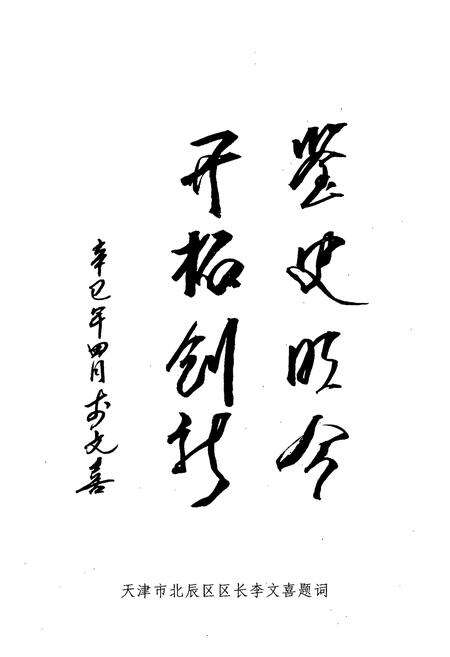 鉴史明今
开拓创新
辛巳年四月李文喜
天津市北辰区区长李文喜题词